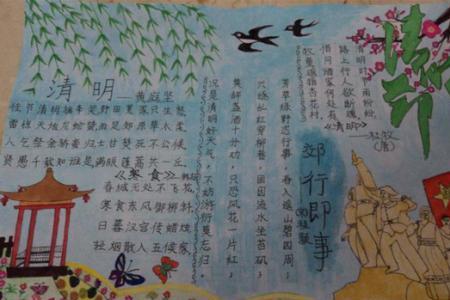 清明
清明时节雨纷纷，
路上行人欲断魂。
借问酒家何处有，
牧童遥指杏花村。
《清明》
—杜牧
(唐)
郊行即事
(宋)程颢
芳草绿野恣行事，春入遥山碧四周；
兴逐乱红穿柳巷，困临流水坐苔矶；
莫辞盏酒十分劝，只恐风花一片红；
况是清明好天气，不妨游衍莫忘归。
清明——黄庭坚
佳节清明桃李笑野田荒冢只生愁
雷惊天地龙蛇蛰雨足郊原草木柔
人乞祭余骄妾妇士甘焚死不公侯
贤愚千载知谁是满眼蓬蒿共一丘
《寒食》韩翃
春城无处不飞花，
寒食东风御柳斜，
日暮汉宫传蜡烛，
轻烟散入五侯家。